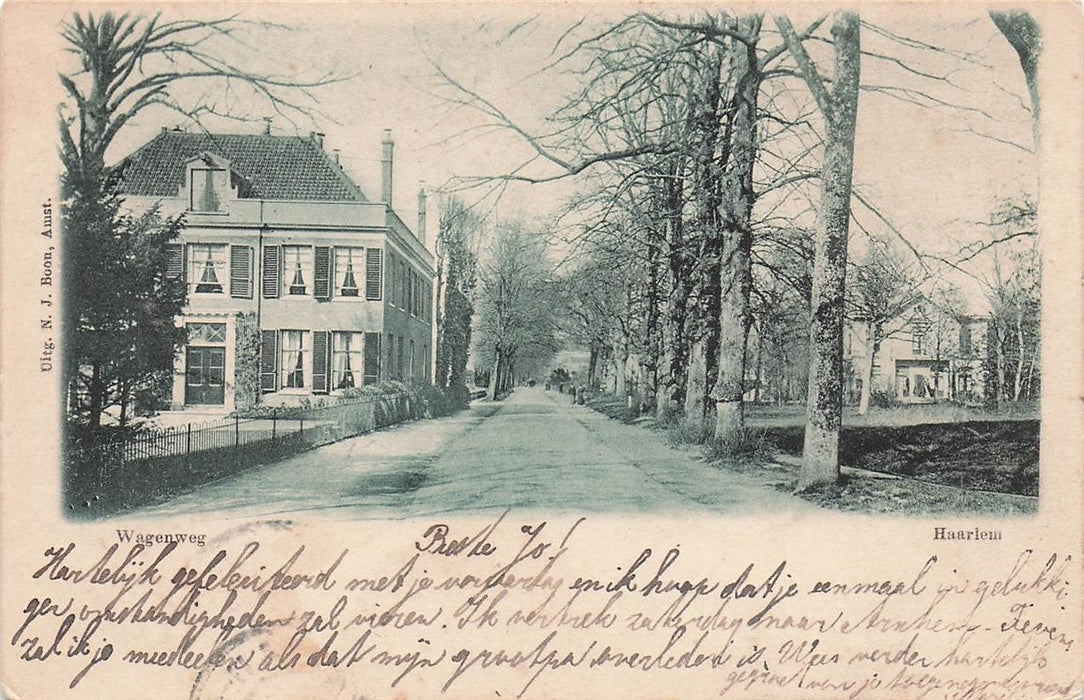 Uitg. N. J. Boon, Amst.
Wagenweg
Haarlem
Beste Jo!
Hartelijk gefeliciteerd met je verjaardag en ik hoop dat je eenmaal in gelukki
ger omstandigheden zal vieren. Ik vertrek zaterdag naar Arnhem. Tevens
zal ik je mededeelen als dat mijn grootpa overleden is. Wees verder hartelijk
gegroet van je